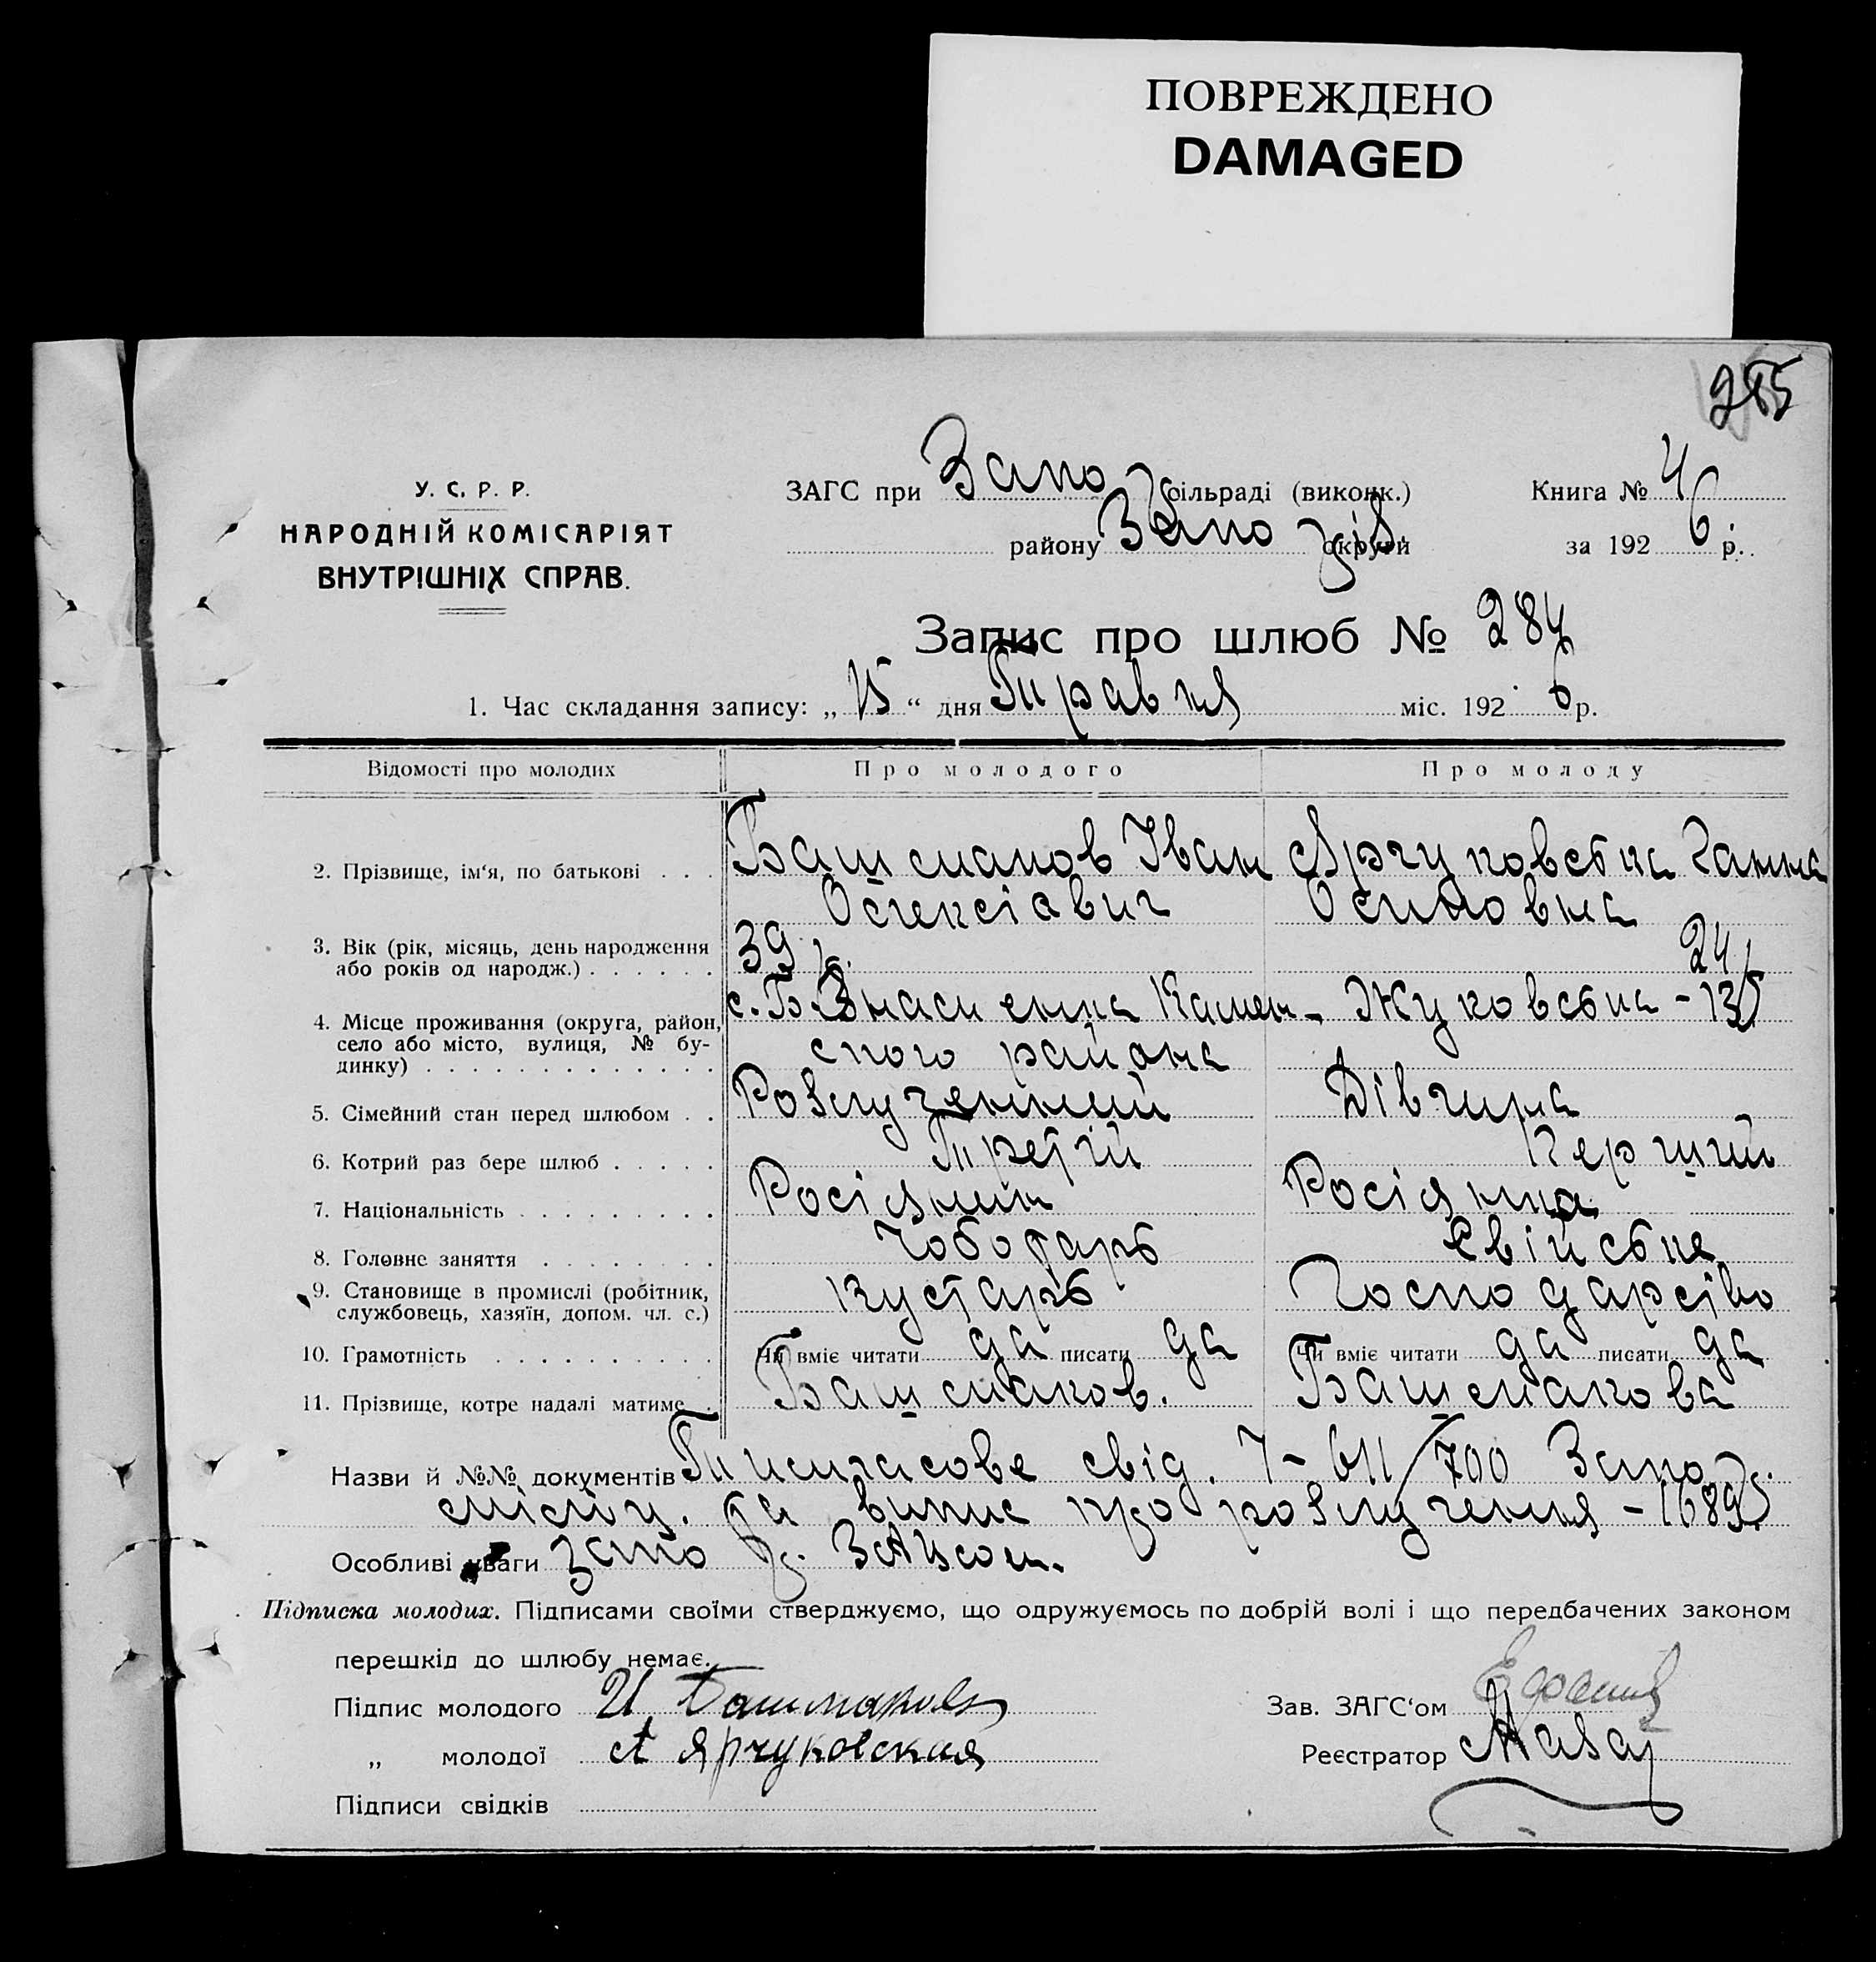 ПОВРЕЖДЕНО
DAMAGED
У. С. Р. Р.
НАРОДНІЙ КОМІСАРІЯТ
ВНУТРІШНІХ СПРАВ.
ЗАГС при Запо сільраді (виконк.)
Книга № 4
району Запо округи
за 192 6 р.
Запис про шлюб № 284
1. Час складання запису: „ 15 “ дня Травня міс. 192 6 р.
Відомості про молодих Про молодого Про молоду
2. Прізвище, ім‘я, по батькові . . . Башмаков Іван Ярчуковська Ганна
Олексіавич Осиповна
3. Вік (рік, місяць, день народження 39 р. 24
або років од народж.) . . . . . .
4. Місце проживання (округа, район, с. Б. Знаменка Камен- Жуковська - 13
село або місто, вулиця, № бу- ского района
динку) . . . . . . . . . . . . .
5. Сімейний стан перед шлюбом . . Розлученний Дівчина
6. Котрий раз бере шлюб . . . . . Третій Перший
7. Національність . . . . . . . . . Росіянин Росіянка
8. Головне заняття . . . . . . . . Чоботарь Свійське
9. Становище в промислі (робітник, Кустарь Господарство
службовець, хазяїн, допом. чл. с.)
10. Грамотність . . . . . . . . . . Чи вміє читати да писати да Чи вміє читати да писати да
11. Прізвище, котре надалі матиме . Башмаков. Башмакова
Назви й №№ документів Тимчасове свід. 7-611/700 Запо
міліц. та випис про розлучення - 1689
Особливі уваги Запо ЗАГсом.
Підписка молодих. Підписами своїми стверджуємо, що одружуємось по добрій волі і що передбачених законом
перешкід до шлюбу немає.
Підпис молодого И. Башмаков
Зав. ЗАГС‘ом
„ молодої А Ярчуковская
Реєстратор
Підписи свідків